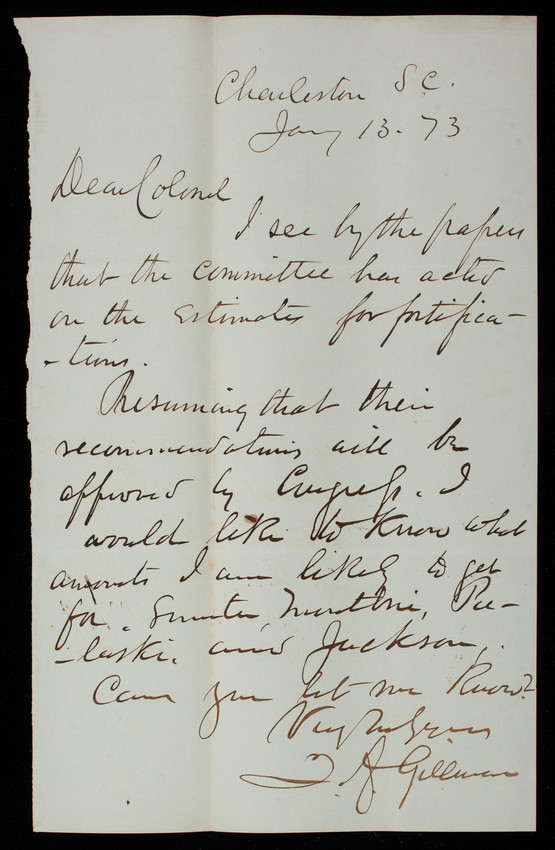 Charleston S.C.
Jany 13. 73
Dear Colonel
I see by the papers
that the committee has acted
on the Estimates for fortifica-
-tions.
Presuming that their
recommendations will be
approved by Congress. I
would like to know what
amounts I am likely to get
for. Sumter, Moultrie, Pu-
-laski. and Jackson,.
Can you let me know?
Very truly yours
Q. A. Gillmore